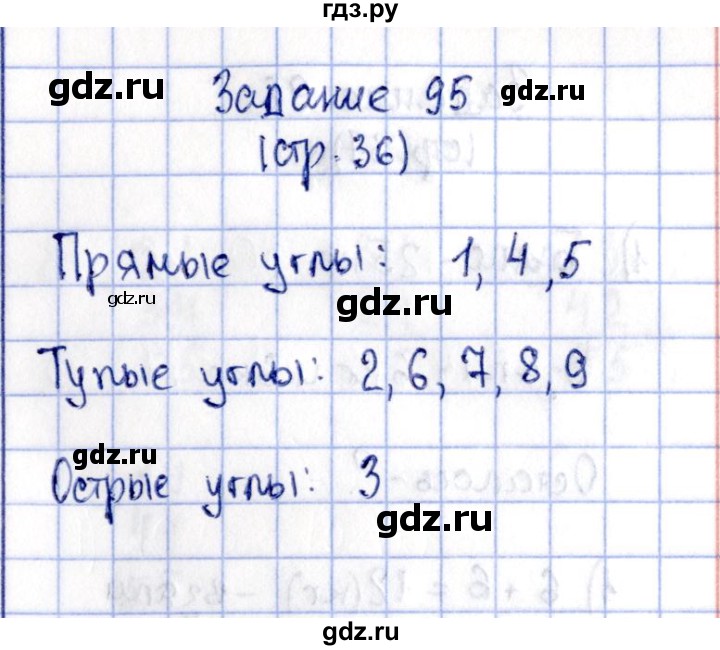 гдз.ру
gdz.ru
Задание 95
gdz.ru
(стр. 36)
Прямые углы: 1, 4, 5
gdz.ru
gdz.ru
Тупые углы: 2, 6, 7, 8, 9
gdz.ru
Острые углы: 3
gdz.ru
gdz.ru